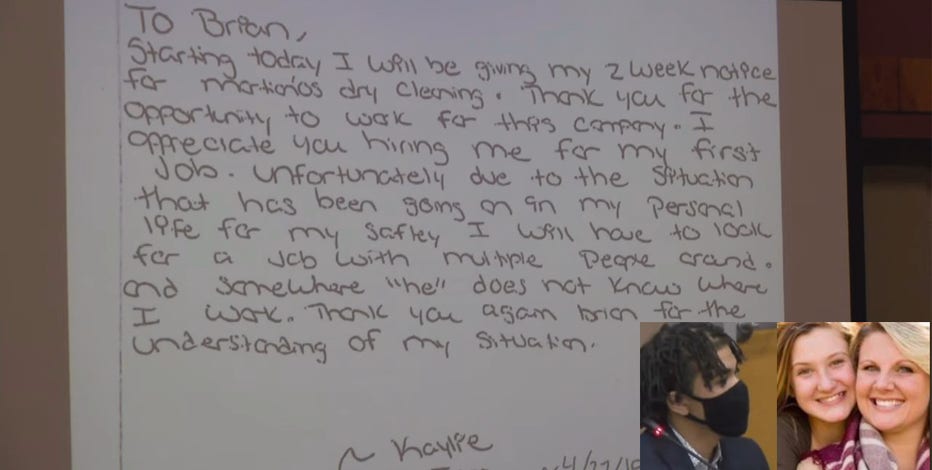 To Brian,
Starting today I will be giving my 2 week notice
for martionos dry cleaning. Thank you for the
opportunity to work for this company. I
appreciate you hiring me for my first
Job. unfortunately due to the situation
that has been going on in my personal
life for my safley I will have to look
for a Job with multiple people around.
and somewhere "he" does not know where
I work. Thank you again brian for the
understanding of my situation.
~ Kaylie
4/22/19